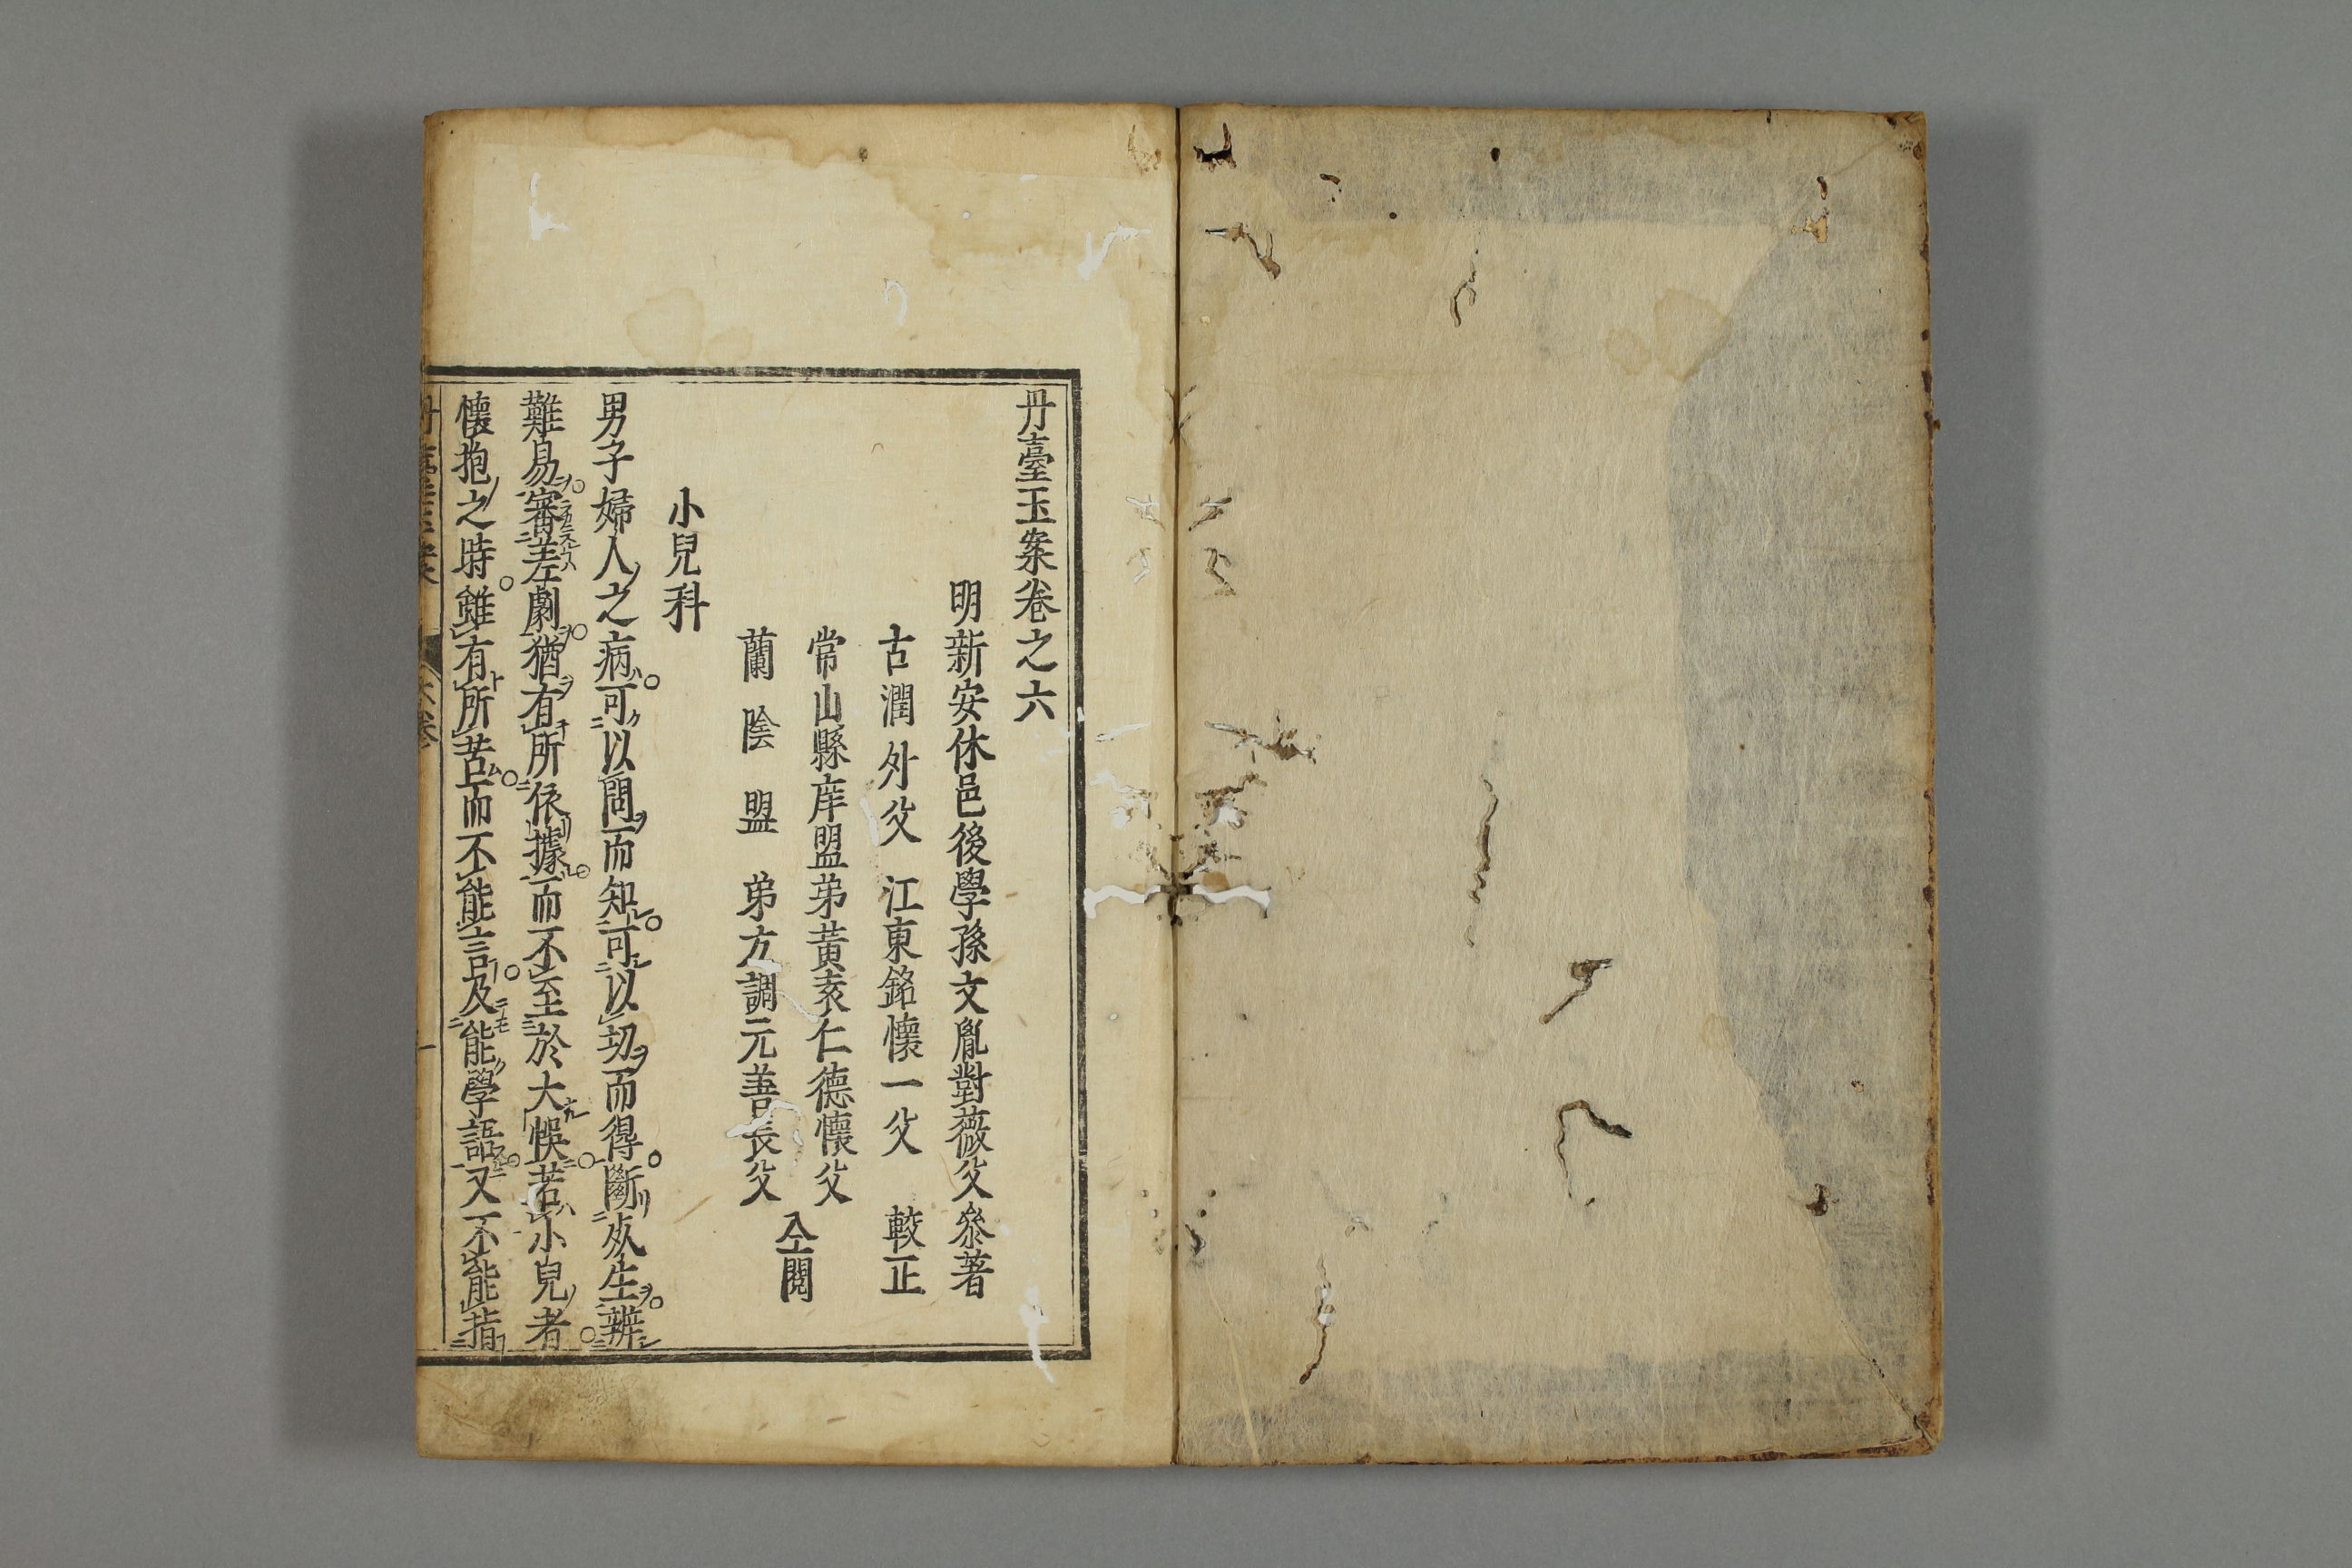 丹臺玉案卷之六
明新安休邑後學孫文胤對薇父叅著
古潤外父江東銘懷一父較正
常山縣庠盟弟黃袞仁德懷父
蘭陰盟弟方調元善長父
仝閱
小兒科
男子婦人之病可以問而知可以切而得斷死生辨
難易審差劇猶有所依據而不至於大悞若小兒者
懷抱之時雖有所苦而不能言及能學語又不能指